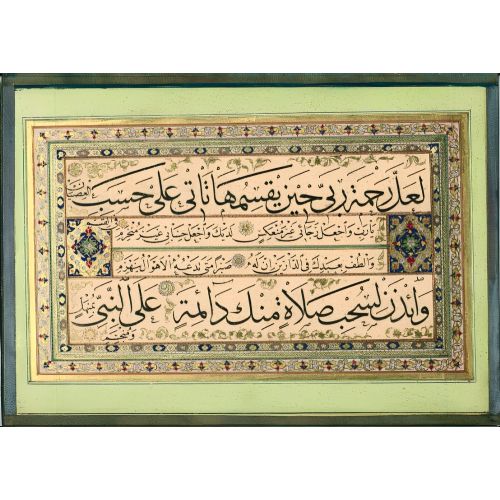 لعل رحمة ربي حين يقسمها تاتي على حسب العصيان في القسم
يارب واجعل رجائي غير منعكس لديك واجعل حسابي غير منخرم
والطف بعبدك في الدارين ان له صبرا متى تدعه الاهوال ينهزم
وائذن لسحب صلاة منك دائمة على النبي بمنهل ومنسجم